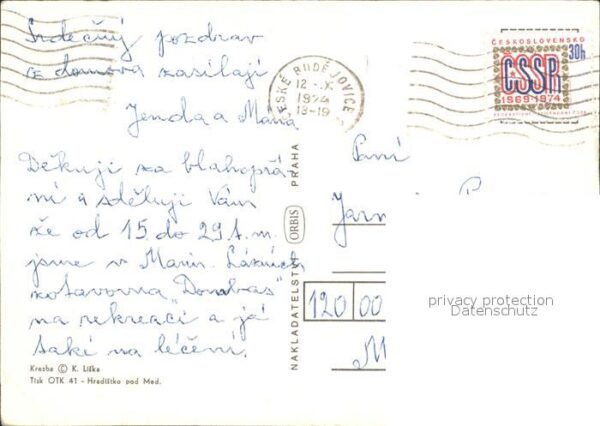 Srdečný pozdrav
z domova zasílají
Jenda a Mána
Děkuji za blahopřá-
ní a sděluji Vám
že od 15 do 29 t.m.
jsme v Marin. Lázních
zotavovna „Donbas"
na rekreaci a já
také na léčení.
Kresba © K. Liška
Tisk OTK 41 - Hradištko pod Med.
NAKLADATELSTVÍ ORBIS PRAHA
ČESKÉ BUDĚJOVICE
12.-X.
1974
18-19
ČESKOSLOVENSKO
30h
ČSSR
1969-1974
Paní
Jarm
120 00
privacy protection
Datenschutz